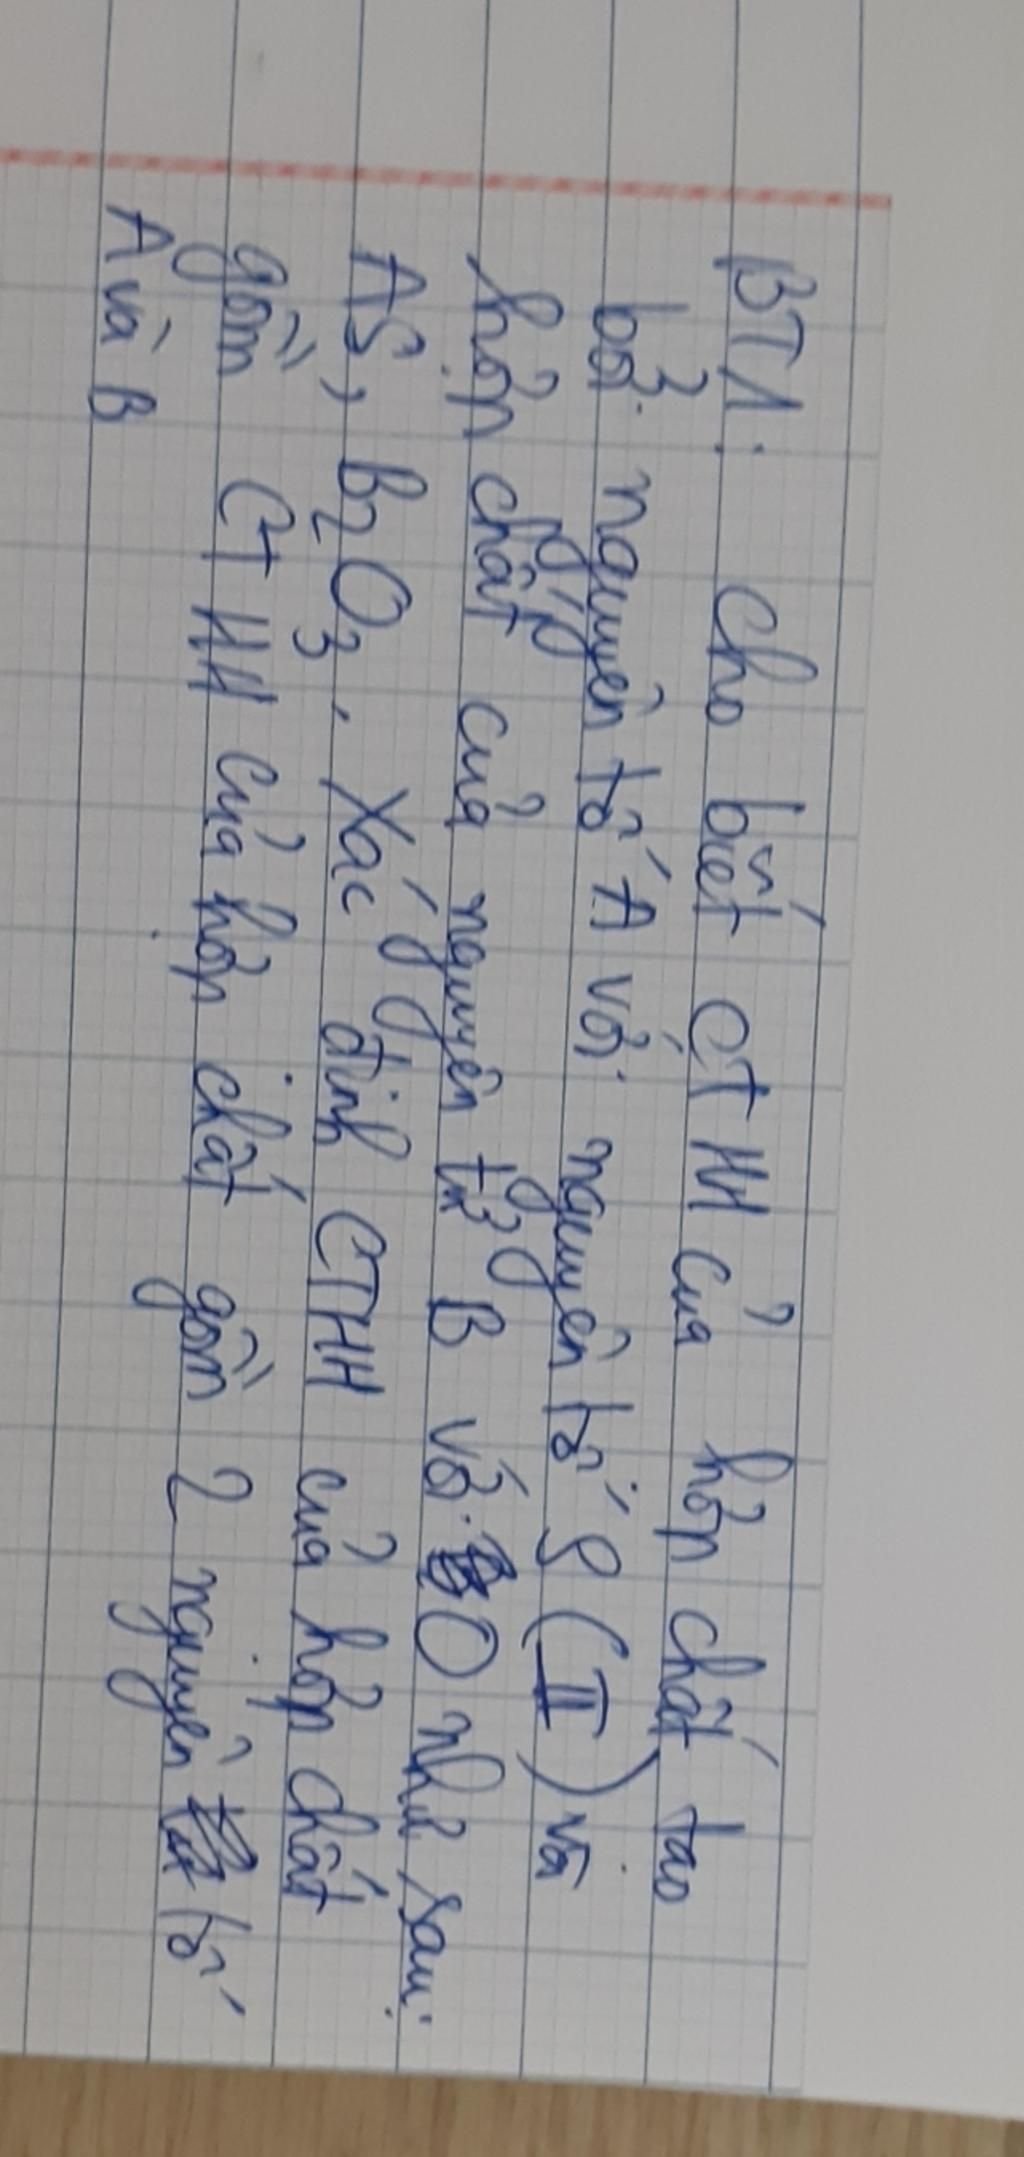 BT1: Cho biết CTHH của hợp chất tạo
bởi nguyên tố A với nguyên tố S (II) và
hợp chất của nguyên tử B với O như sau:
AS, B2O3. Xác định CTHH của hợp chất
gồm CTHH của hợp chất gồm 2 nguyên tố
A và B